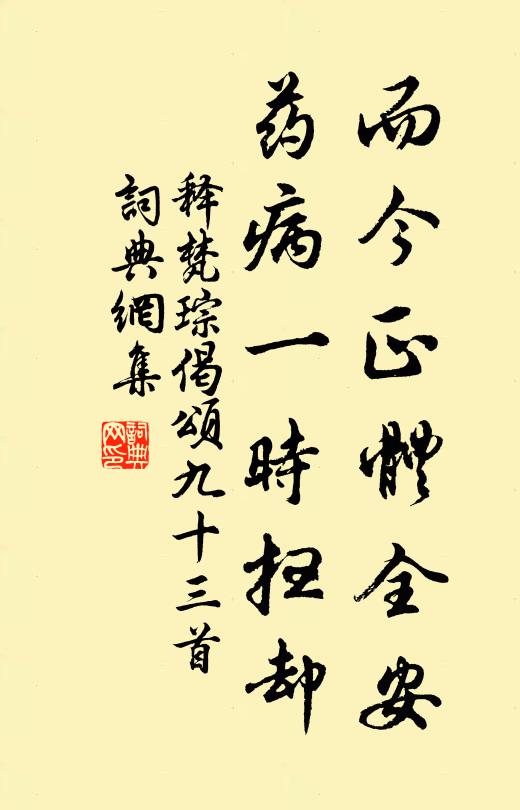 而今正體全安
药病一時扫却
释梵琮偈頌九十三首
詞典網集
詞典
网印